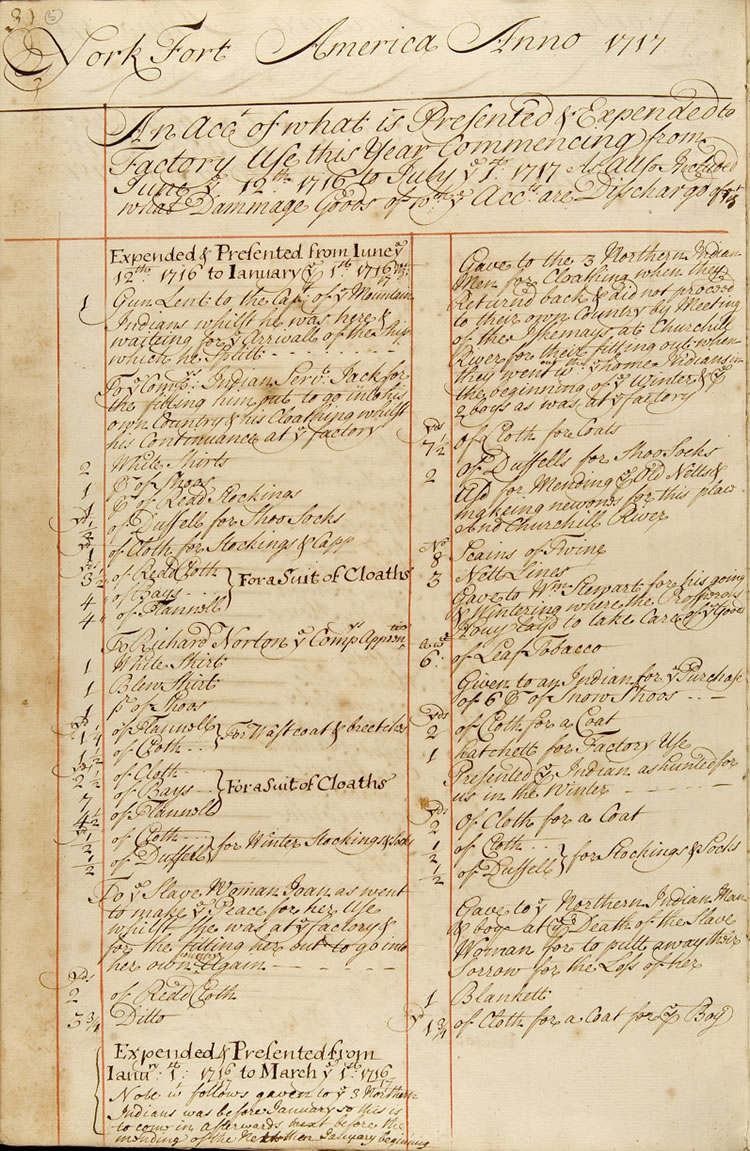 31
York Fort America Anno 1717
An Acct of what is Presented & Expended to
Factory Use this Year Commencing from
June ye 12th 1716 to July ye 1st 1717 As Allso Inclosed
what Dammage Goods of wth ye Acct are Dischargd of
Expended & Presented from Iune ye
12th: 1716 to Ianuary ye 1st: 1716/17
1 Gun Lent to the Capt of ye Mountain
Indians whilst he was here &
waiteing for ye Arrivall of the Ship
which he Splitt
To ye Compys: Indian Servt: Jack for
the fitting him out to go into his
own Country & his Cloathing whilst
his Continuance at ye factory
2 White Shirts
1 pr of Shoos
1 pr of Read Stockings
Yd 1/2 of Duffell for Shoo Socks
Yd 1 of Cloth for Stockings & Capp
Yds 3 1/2 of Read Cloth
4 of Bays
4 of Flannell
For a Suit of Cloaths
To Richard Norton ye Compys Apprentice
1 White Shirt
1 Blew Shirt
1 pr of Shoos
Yds 1 1/4 of Flannell
1/2 of Cloth
For Wastcoat & breetches
2 1/2 of Cloth
7 of Bays
4 1/2 of Flannell
For a Suit of Cloaths
1/2 of Cloth
1/2 of Duffell
for Winter Stockings & Socks
To ye Slave Woman Joan as went
to make ye Peace for her Use
whilst she was at ye factory &
for the fitting her out to go into
her own Country Again
Yds
2 of Redd Cloth
3 3/4 Ditto
Expended & Presented from
Ianry ye 1st: 1716/17 to March ye 1st: 1716/17
Note wt follows gaven to ye 3 Northern
Indians was before January so this is
to come in afterwards but before the
mending of the Netts then January beginning
Gave to the 3 Northern Indian
Men for Cloathing when they
Returnd back & did not proceed
to their own Country by Meeting
of the Iskemays at Churchill
River for their fitting out when
they went wth ye home Indians in
the beginning of ye Winter & ye
2 boys as was at ye factory
Yds
7 1/2 of Cloth for Coats
2 of Duffells for Shoo Socks
Usd for Mending ye Old Netts &
makeing new ons for this place
And Churchill River
No
8 Scains of Twine
3 Nett Lines
Gave to Wm Stewart for his going
& Wintering where the Prosperous
Houy Layd to take Care of ye Goods
6 of Leaf Tobacco
Given to an Indian for ye Purchase
of 6 pr of Snow Shoos
Yds
2 of Cloth for a Coat
1 hatchett for Factory Use
Presented ye Indian as hunted for
us in the Winter
Yds
2 of Cloth for a Coat
1/2 of Cloth
1/2 of Duffell
for Stockings & Socks
Gave to ye Northern Indian Man
& boy at ye Death of the Slave
Woman for to putt away their
Sorrow for the Loss of her
1 Blankett
Yd 1 3/4 of Cloth for a Coat for ye Boy